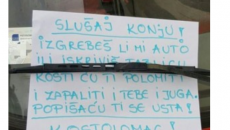 SLUŠAJ KONJU!
IZGREBEŠ LI MI AUTO
ILI ISKRIVIŠ
KOSTI ĆU TI POLOMITI
I ZAPALITI I TEBE I JUGA.
POPIŠAĆU TI SE USTA!